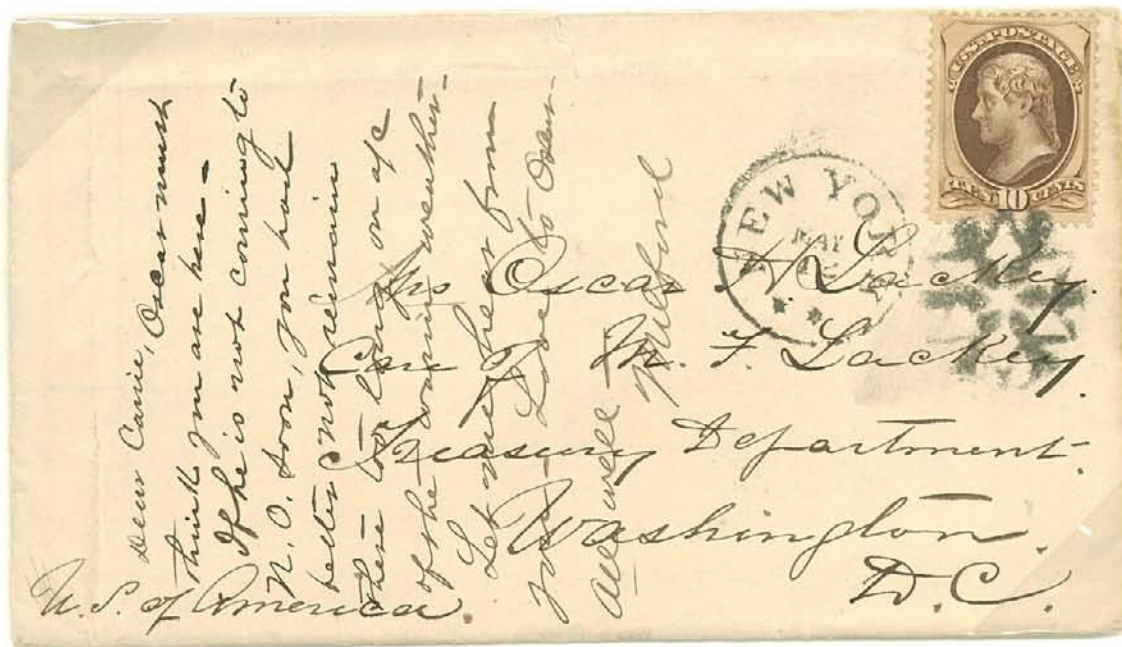 U.S. POSTAGE
TEN 10 CENTS
NEW YORK
MAY
Mrs Oscar Lackey.
Care of M. F. Lackey.
Treasury Department.
Washington.
D.C.
U.S. of America.
Dear Carrie, Oscar must
think you are here -
If he is not coming to
N. O. soon, you had
better not remain
there too long on a/c
of the warm weather -
Let me hear from
you - Love to Oscar -
All well -